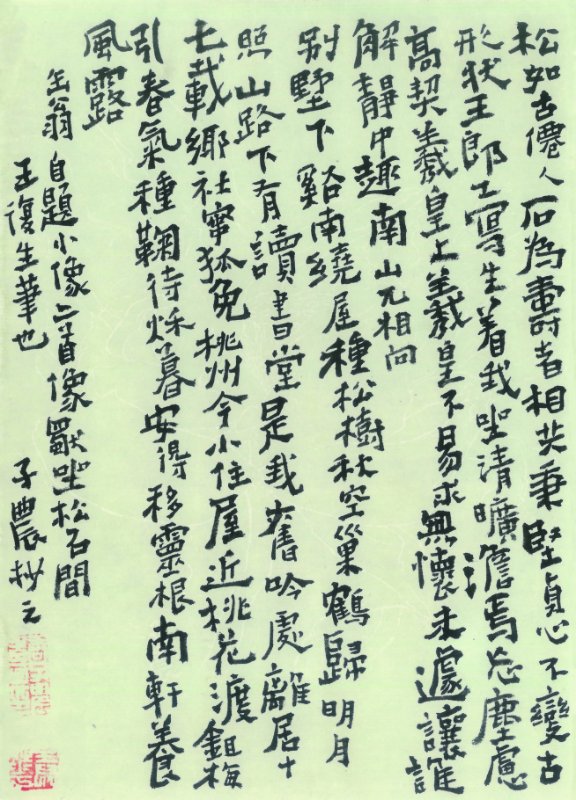 松如古僊人石為壽者相共秉堅貞心不變古
形狀王郎工寫生着我坐清曠澹焉忘塵慮
高契羲皇上羲皇不易求無懷未遽讓誰
解靜中趣南山兀相向
別墅下谿南繞屋種松樹秋空巢鶴歸明月
照山路下有讀書堂是我舊吟處離居十
七載鄉社寧狐兔桃州今小住屋近桃花渡鉏梅
引春氣種鞠待秌暮安得移靈根南軒養
風露
缶翁自題小像二首像獣坐松石間
王復生筆也 子農抄之